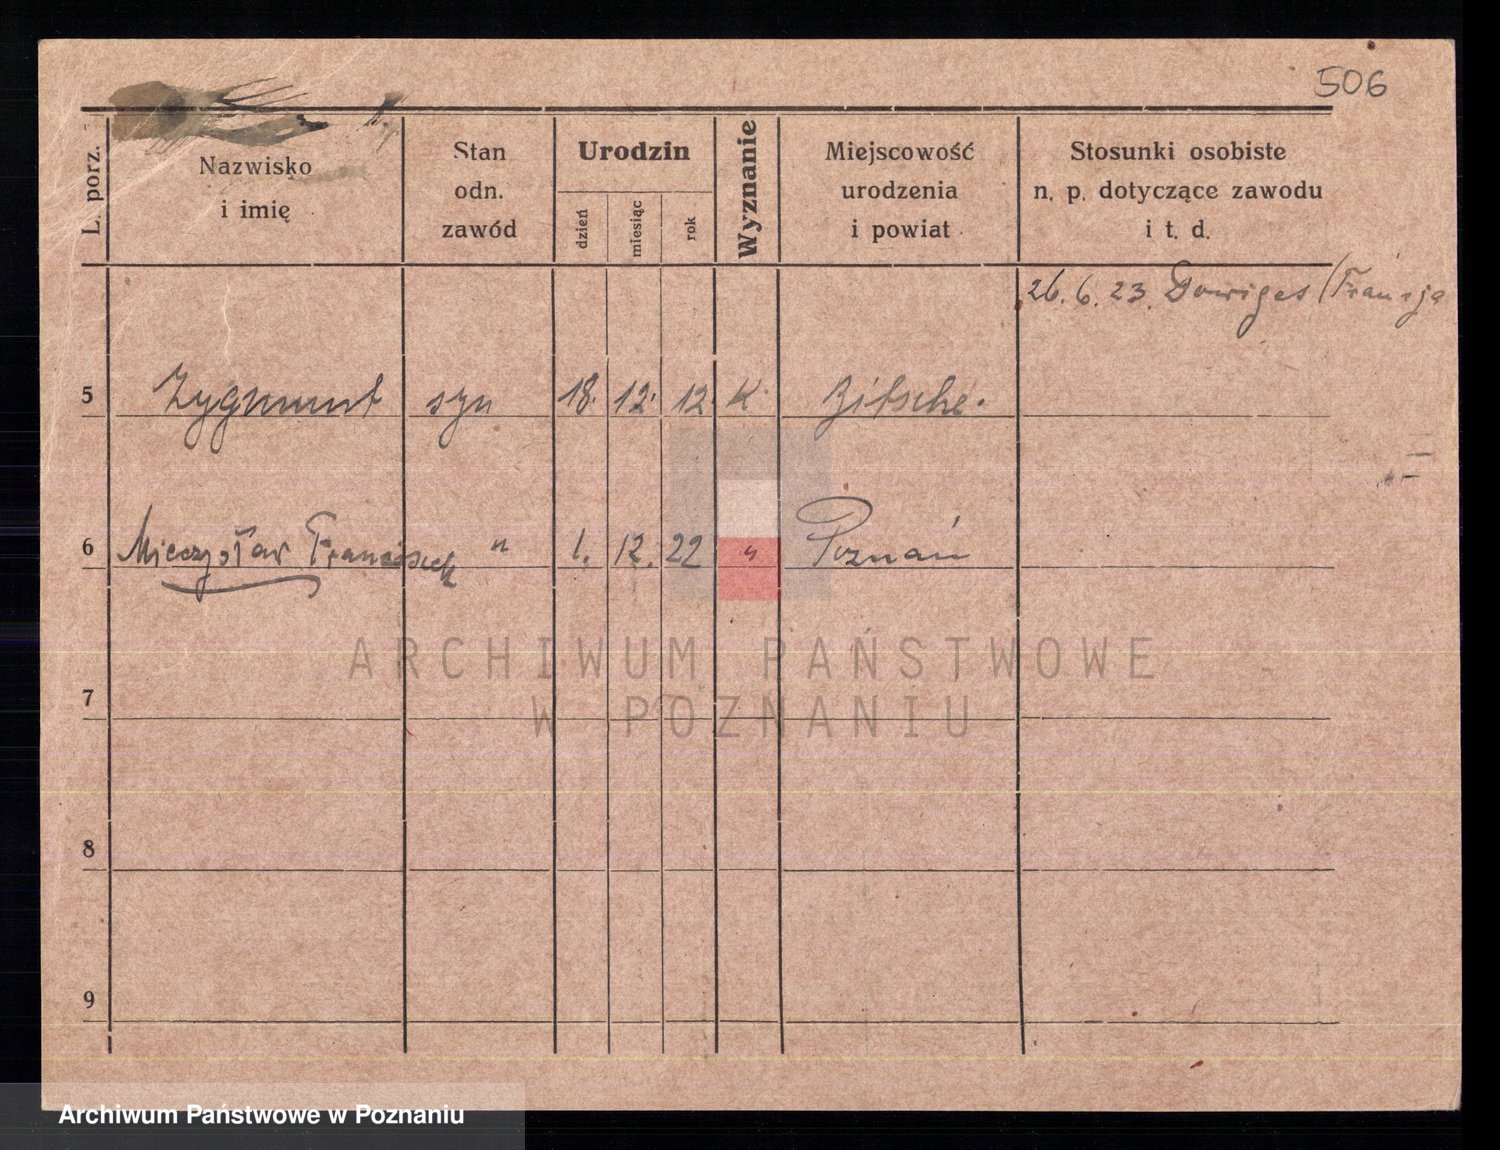 506
L. porz.
Nazwisko
i imię
Stan
odn.
zawód
Urodzin
dzień
miesiąc
rok
Wyznanie
Miejscowość
urodzenia
i powiat
Stosunki osobiste
n. p. dotyczące zawodu
i t. d.
26. 6. 23. (Francja
5 Zygmunt syn 18. 12. 12. K. Bitsche.
6 Mieczysław Franciszek " 1. 12. 22 " Poznań
7
8
9
ARCHIWUM PAŃSTWOWE
W POZNANIU
Archiwum Państwowe w Poznaniu